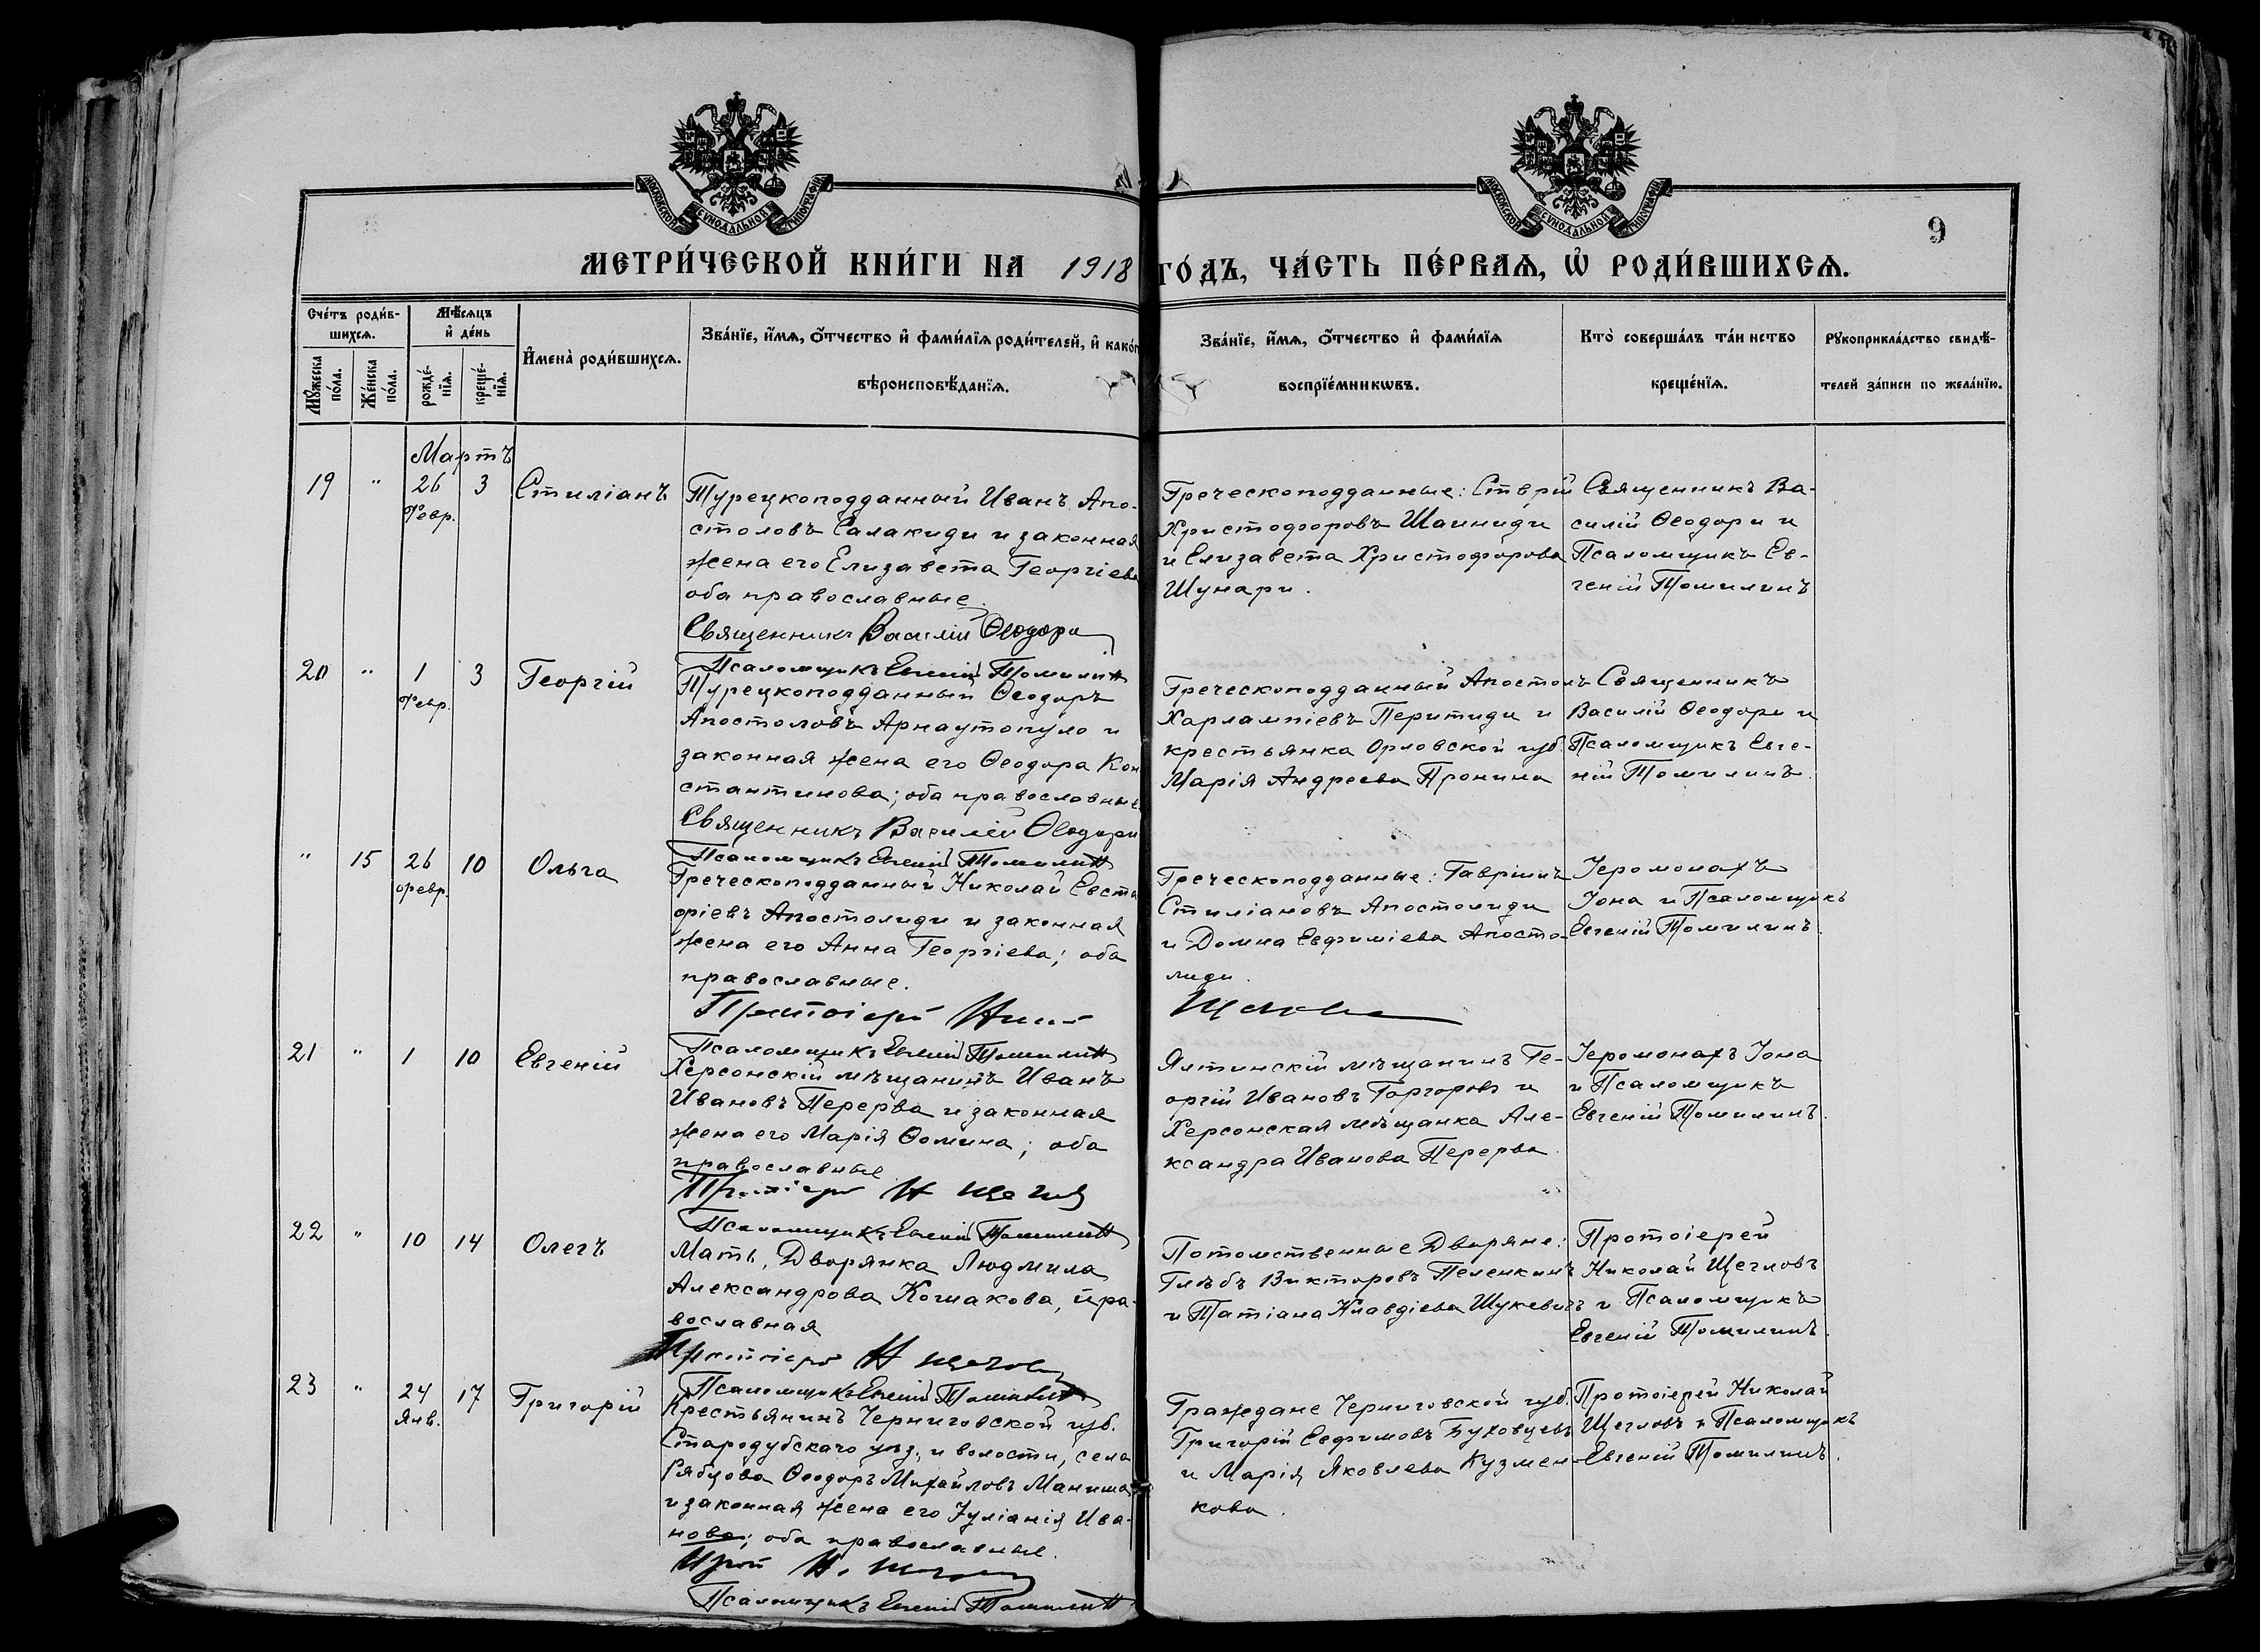 МОСКОВСКОЙ СУНОДАЛЬНОЙ ТИПОГРАФІИ
МОСКОВСКОЙ СУНОДАЛЬНОЙ ТИПОГРАФІИ
9
МЕТРИ́ЧЕСКОЙ КНИ́ГИ НА 1918 ГО́ДЪ, ЧА́СТЬ ПЕ́РВАѦ, Ѡ҆ РОДИ́ВШИХСѦ.
Сче́тъ роди́в-
шихсѧ.
Мꙋ́жеска
по́ла.
Же́нска
по́ла.
Мѣ́сѧцъ
и҆ де́нь
рожде́-
нїѧ.
креще́-
нїѧ.
И҆мена̀ роди́вшихсѧ.
Зва́нїе, и҆́мѧ, ѻ҆́тчество и҆ фами́лїѧ роди́телей, и҆ како́г
вѣроисповѣ́данїѧ.
Зва́нїе, и҆́мѧ, ѻ҆́тчество и҆ фами́лїѧ
воспрїе́мникѡвъ.
Кто̀ соверша́лъ та́инство
креще́нїѧ.
Рꙋкоприкла́дство свидѣ́-
телей за́писи по жела́нїю.
Мартъ
19 " 26 3 Стиліанъ
Февр.
Турецкоподданный Иванъ Апо-
столовъ Салакиди и законная
жена его Елизавета Георгіева
оба православные.
Священникъ Василій Ѳеодори
Псаломщикъ Евгеній Томилинъ
Греческоподданные:
Христофоровъ Шаиниди
и Елизавета Христофорова
Шунари.
Священникъ Ва-
силій Ѳеодори и
Псаломщикъ Ев-
геній Томилинъ
20 " 1 3 Георгій
Февр.
Турецкоподданный Ѳеодоръ
Апостоловъ Арнаутопуло и
законная жена его Ѳеодора Кон
стантинова; оба православные.
Священникъ Василій Ѳеодори
Псаломщикъ Евгеній Томилинъ
Греческоподданный Апостолъ
Харлампіевъ Перитиди и
крестьянка Орловской губ.
Марія Андреева Пронина
Священникъ
Василій Ѳеодори и
Псаломщикъ Евге-
ній Томилинъ.
" 15 26 10 Ольга
февр.
Греческоподданный Николай Евста
фіевъ Апостолиди и законная
жена его Анна Георгіева; оба
православные.
Протоіерей Ник
Щегловъ
Псаломщикъ Евгеній Томилинъ
Греческоподданные: Гавріилъ
Стиліановъ Апостолиди
и Домна Евфиміева Апосто-
лиди.
Іеромонахъ
Іона и Псаломщикъ
Евгеній Томилинъ.
21 " 1 10 Евгеній
Херсонскій мѣщанинъ Иванъ
Ивановъ Перерва и законная
жена его Марія Ѳомина; оба
православные
Протоіерей Н Щегловъ
Псаломщикъ Евгеній Томилинъ
Ялтинскій мѣщанинъ Ге-
оргій Ивановъ
Херсонская мѣщанка Але-
ксандра Иванова Перерва.
Іеромонахъ Іона
и Псаломщикъ
Евгеній Томилинъ.
22 " 10 14 Олегъ
Мать, Дворянка Людмила
Александрова пра-
вославная
Протоіерей Н Щегловъ
Псаломщикъ Евгеній Томилинъ
Потомственные Дворяне:
Глѣбъ Викторовъ Пеленкинъ
и Татіана Клавдіева Шукевичъ
Протоіерей
Николай Щегловъ
и Псаломщикъ
Евгеній Томилинъ.
23 " 24 17 Григорій
Янв.
Крестьянинъ Черниговской губ.
Стародубскаго уѣз. и волости, села
Рябцова Ѳеодоръ Михайловъ
и законная жена его Іуліанія Ива-
нова; оба православные.
Прот Н. Щегловъ
Псаломщикъ Евгеній Томилинъ
Граждане Черниговской губ.
Григорій Евфимовъ Буховцевъ
и Марія Яковлева Кузмен-
кова.
Протоіерей Николай
Щегловъ и Псаломщикъ
Евгеній Томилинъ.